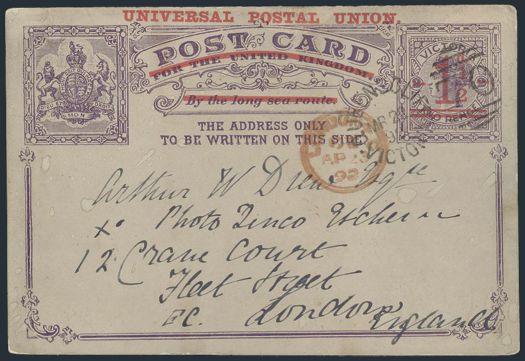 UNIVERSAL POSTAL UNION.
POST CARD
FOR THE UNITED KINGDOM
By the long sea route.
THE ADDRESS ONLY
TO BE WRITTEN ON THIS SIDE
VICTORIA
1½
LONDON
AP 23
92
Arthur W Esqre
Photo Zinco
12 Crane Court
Fleet Street
EC. London
England